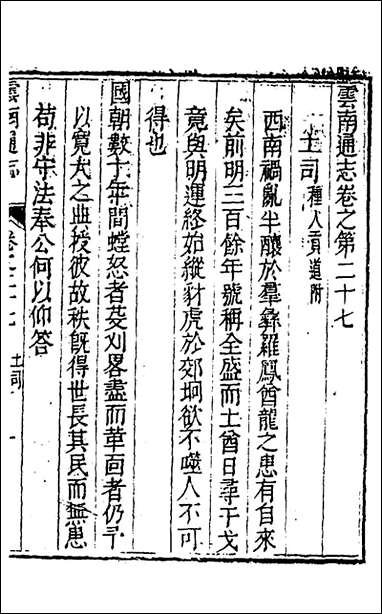 雲南通志卷之第二十七
土司 種人貢道附
西南禍亂半釀於羣彝羅鳳酋龍之患有自來
矣前明三百餘年號稱全盛而土酋日尋干戈
竟與明運終始縱豺虎於郊坰欲不噬人不可
得也
國朝數十年間螳怒者芟刈畧盡而革面者仍予
以寬大之典授彼故秩旣得世長其民而無患
苟非守法奉公何以仰答
雲南通志
土司